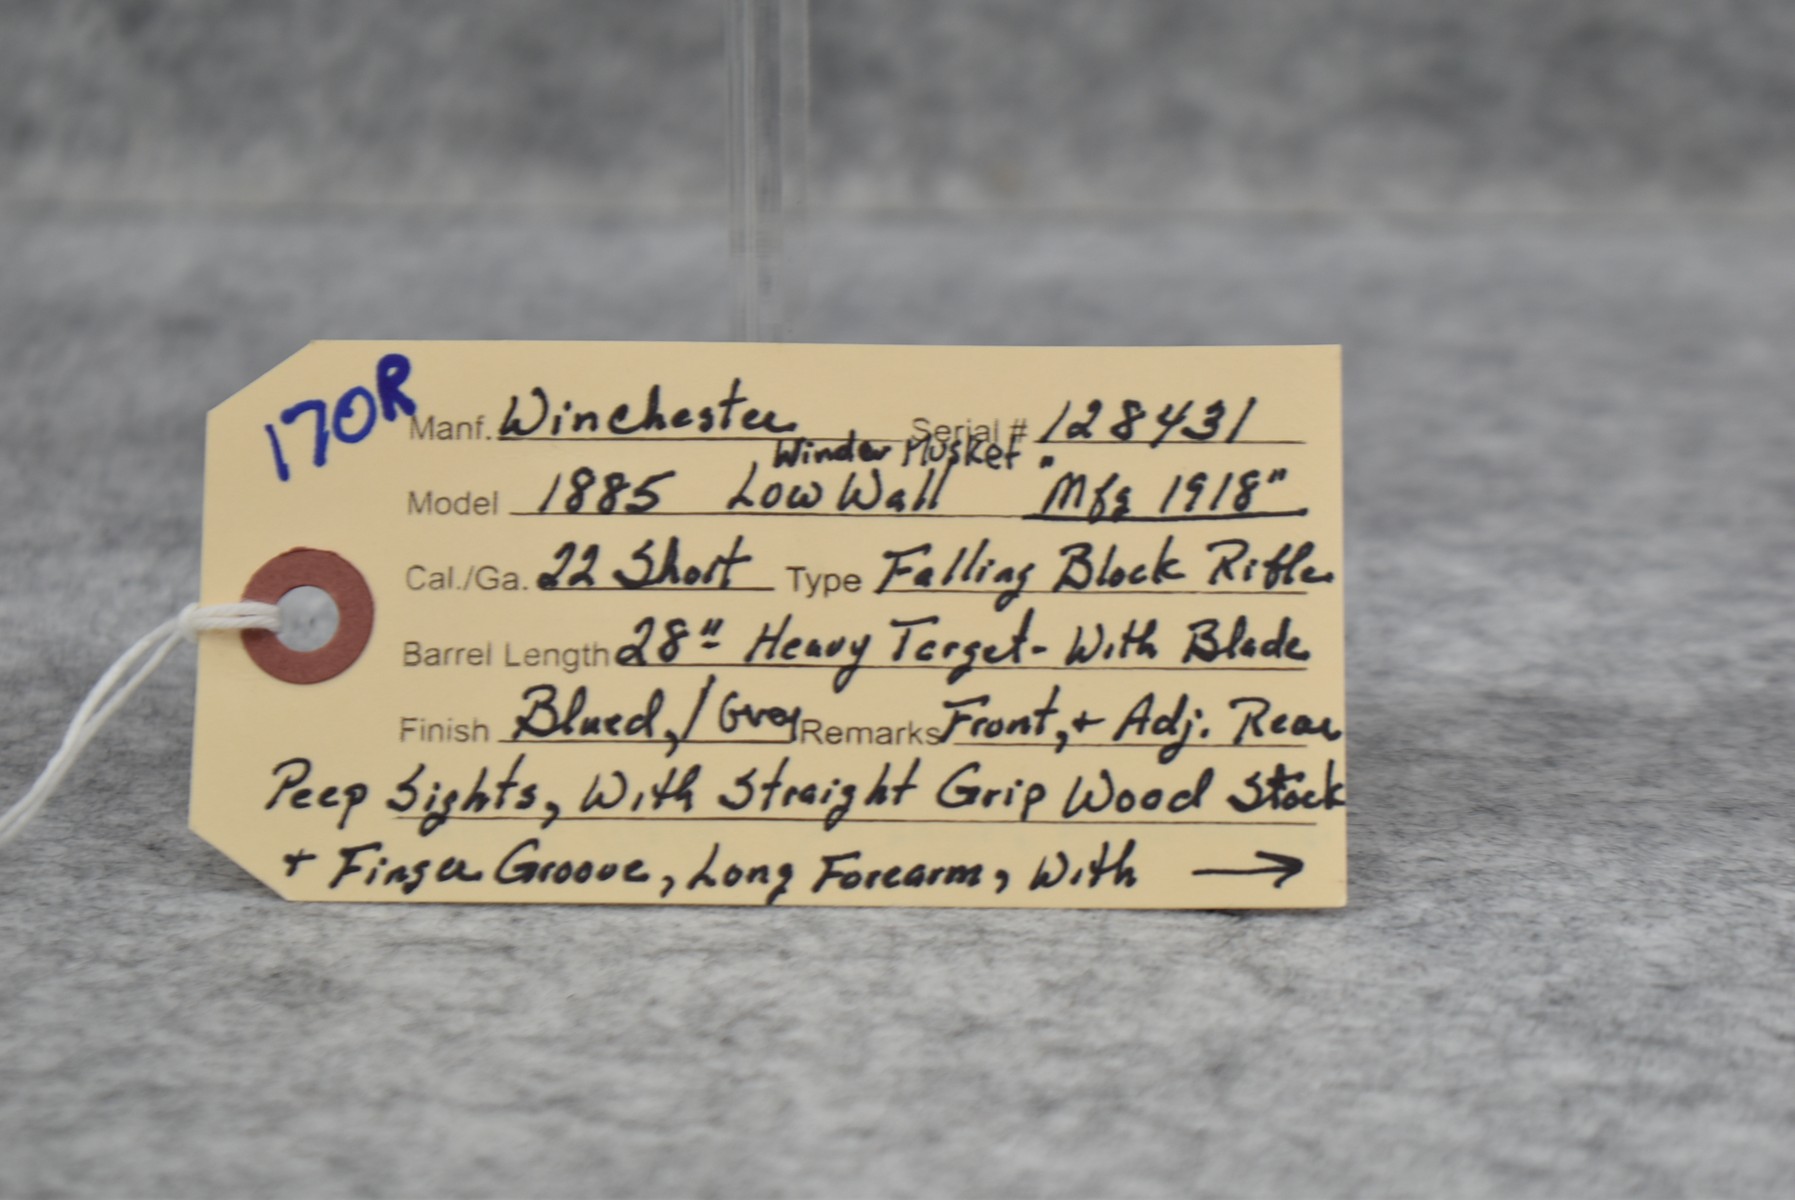 170R
Manf. Winchester Serial # 128431
Winder Musket
Model 1885 Low Wall "Mfg 1918"
Cal./Ga. 22 Short Type Falling Block Rifle
Barrel Length 28" Heavy Target - With Blade
Finish Blued, / Grey Remarks Front, + Adj. Rear
Peep Sights, With Straight Grip Wood Stock
+ Finger Groove, Long Forearm, With →